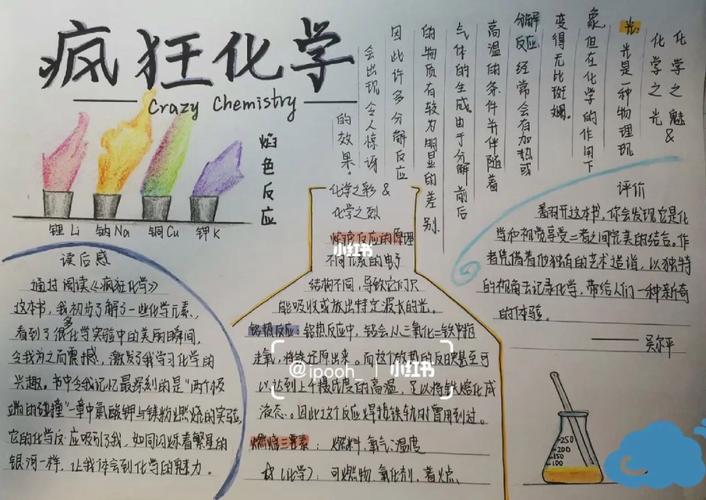 疯狂化学
Crazy Chemistry
焰色反应
锂 Li 钠 Na 铜 Cu 钾 K
化学之魅&
化学之光
光:光是一种物理现
象,但在化学的作用下
变得无比斑斓。
分解
反应:经常会有加热或
高温的条件并伴随着
气体的生成,由于分解前后
的物质有较为明显的差别,
因此许多分解反应
会出现令人惊讶
的效果。
化学之彩&
化学之烈
焰色反应的原理
不同元素的电子
结构不同,导致它们只
能吸收或放出特定波长的光。
铝热反应:铝热反应中,铝会从三氧化二铁中抢
走氧,将铁还原出来。而这个放热的反应甚至可
以达到上千摄氏度的高温,足以将铁熔化成
液态。因此这个反应焊接铁轨时常用到过。
燃烧三要素:燃料、氧气、温度
(化学):可燃物、氧化剂、着火点
读后感
通过阅读《疯狂化学》
这本书,我初步了解了一些化学元素,
看到了很多化学实验中的美丽瞬间,
令我为之而震撼,激发了我学习化学的
兴趣。书中令我记忆最深刻的是“两个极
端的碰撞”一章中氯酸钾与镁粉燃烧的实验,
它的化学反应吸引了我,如同闪烁着繁星的
银河一样,让我体会到化学的魅力。
评价
翻开这本书,你会发现它是化
学和视觉享受二者之间完美的结合。作
者凭借着他独有的艺术造诣,以独特
的视角去记录化学,带给人们一种新奇
的体验。
——吴尔平
250
200
150
100
小红书
@ipooh_ 小红书